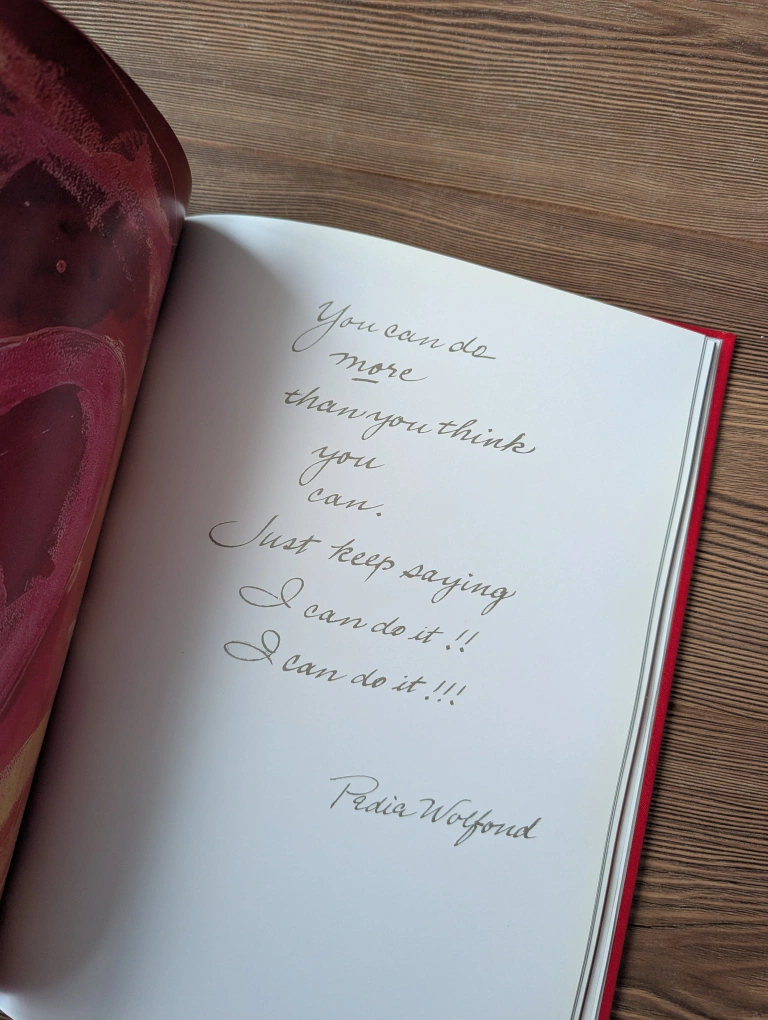 You can do
more
than you think
you
can.
Just keep saying
I can do it !!
I can do it !!!
Pedia Wolfond